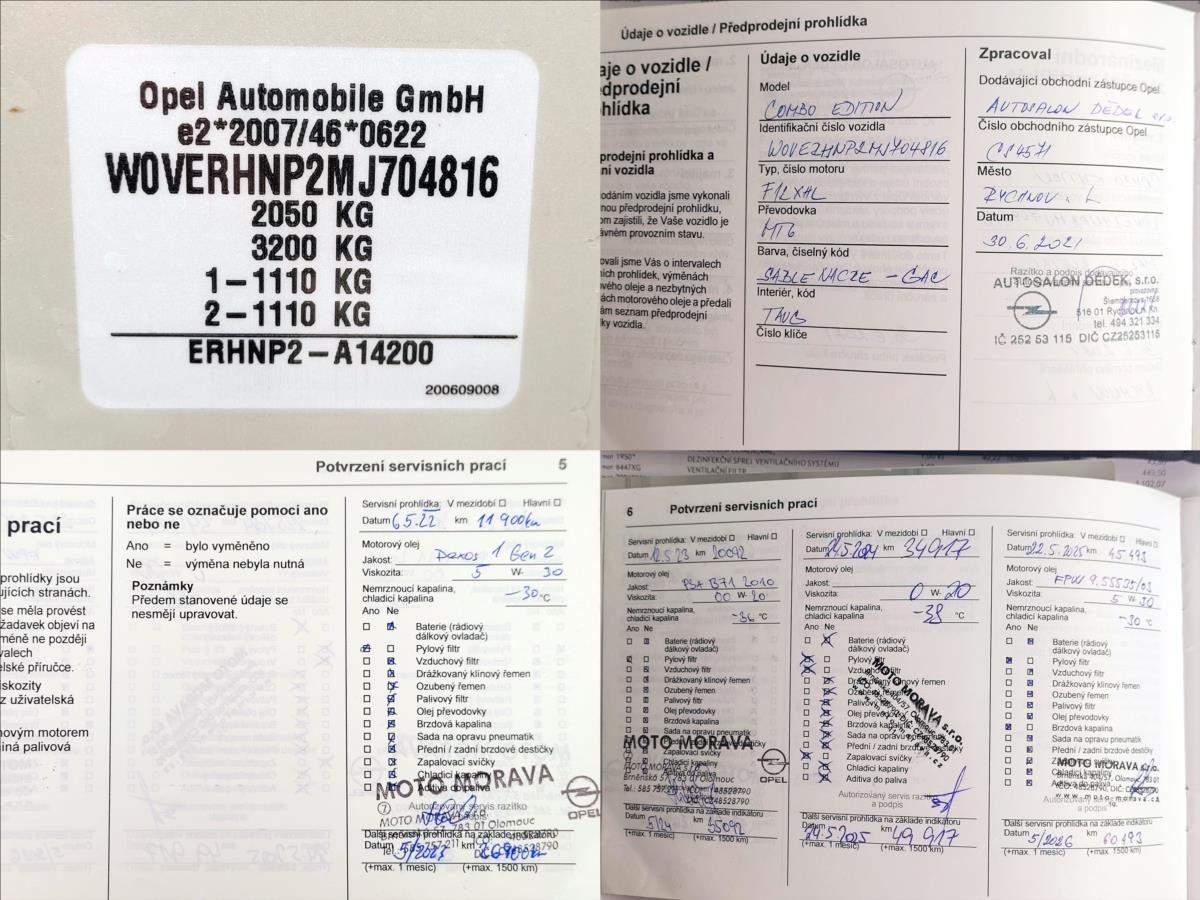 Opel Automobile GmbH
e2*2007/46*0622
W0VERHNP2MJ704816
2050 KG
3200 KG
1-1110 KG
2-1110 KG
ERHNP2-A14200
200609008
Údaje o vozidle / Předprodejní prohlídka
aje o vozidle /
dprodejní
hlídka
prodejní prohlídka a
ní vozidla
odáním vozidla jsme vykonali
nou předprodejní prohlídku,
om zajistili, že Vaše vozidlo je
ávném provozním stavu.
ovali jsme Vás o intervalech
ich prohlídek, výměnách
vého oleje a nezbytných
ách motorového oleje a předali
ám seznam předprodejní
ky vozidla.
Údaje o vozidle
Model
COMBO EDITION
Identifikační číslo vozidla
Typ, číslo motoru
Převodovka
MT6
Barva, číselný kód
Interiér, kód
Číslo klíče
Zpracoval
Dodávající obchodní zástupce Opel
AUTOSALON DĚDEK
Číslo obchodního zástupce Opel
Město
RYCHNOV
Datum
30.6.2021
Razítko a podpis
AUTOSALON DĚDEK, s.r.o.
516 01 Rychnov n. Kn.
tel. 494 321 334
IČ 252 53 115 DIČ CZ25253115
Potvrzení servisních prací 5
prací
prohlídky jsou
ujících stranách.
se měla provést
žadavek objeví na
méně ne později
valech
elské příručce.
iskozity
z uživatelská
novým motorem
iná palivová
Práce se označuje pomocí ano
nebo ne
Ano = bylo vyměněno
Ne = výměna nebyla nutná
Poznámky
Předem stanovené údaje se
nesměji upravovat.
Servisní prohlídka: V mezidobí Hlavní
Datum 6.5.22 km 11 900km
Motorový olej
Jakost: Dexos 1 Gen 2
Viskozita: 5 W- 30
Nemrznoucí kapalina,
chladicí kapalina -30 °C
Ano Ne
Baterie (rádiový
dálkový ovladač)
Pylový filtr
Vzduchový filtr
Drážkovaný klínový řemen
Ozubený řemen
Palivový filtr
Olej převodovky
Brzdová kapalina
Sada na opravu pneumatik
Přední / zadní brzdové destičky
Zapalovací svíčky
Chladicí kapaliny
Aditiva do paliva
MOTO MORAVA
Autorizovaný servis razítko
OPEL
Další servisní prohlídka na základě indikátoru
Datum 5/2023 km
(+max. 1 měsíc) (+max. 1500 km)
DEZINFEKČNÍ SPREJ VENTILAČNÍHO SYSTÉMU
VENTILAČNÍ FILTR
6 Potvrzení servisních prací
Servisní prohlídka: V mezidobí Hlavní
Datum 12.5.23 km 20092
Motorový olej
Jakost: PSA B71 2010
Viskozita: 00 W- 20
Nemrznoucí kapalina,
chladicí kapalina -36 °C
Ano Ne
Baterie (rádiový
dálkový ovladač)
Pylový filtr
Vzduchový filtr
Drážkovaný klínový řemen
Ozubený řemen
Palivový filtr
Olej převodovky
Brzdová kapalina
MOTO MORAVA
OPEL
Další servisní prohlídka na základě indikátoru
Datum 5/24 km 35092
(+max. 1 měsíc) (+max. 1500 km)
Servisní prohlídka: V mezidobí Hlavní
Datum 24.5.2024 km 34917
Motorový olej
Jakost:
Viskozita: 0 W- 20
Nemrznoucí kapalina,
chladicí kapalina -38 °C
Ano Ne
Baterie (rádiový
dálkový ovladač)
Pylový filtr
Vzduchový filtr
Drážkovaný klínový řemen
Ozubený řemen
Palivový filtr
Olej převodovky
Brzdová kapalina
Sada na opravu pneumatik
Přední / zadní brzdové destičky
Zapalovací svíčky
Chladicí kapaliny
Aditiva do paliva
MOTO MORAVA s.r.o.
Autorizovaný servis razítko
a podpis
Další servisní prohlídka na základě indikátoru
Datum 24.5.2025 km 49 917
(+max. 1 měsíc) (+max. 1500 km)
Servisní prohlídka: V mezidobí Hlavní
Datum 22.5.2025 km 45 493
Motorový olej
Jakost: FPW 9.55535/03
Viskozita: 5 W- 30
Nemrznoucí kapalina,
chladicí kapalina -30 °C
Ano Ne
Baterie (rádiový
dálkový ovladač)
Pylový filtr
Vzduchový filtr
Drážkovaný klínový řemen
Ozubený řemen
Palivový filtr
Olej převodovky
Brzdová kapalina
Sada na opravu pneumatik
Přední / zadní brzdové destičky
Zapalovací svíčky
MOTO MORAVA s.r.o.
www.moto-morava.cz
Autorizovaný servis razítko
a podpis
Další servisní prohlídka na základě indikátoru
Datum 5/2026 km 60 493
(+max. 1 měsíc) (+max. 1500 km)